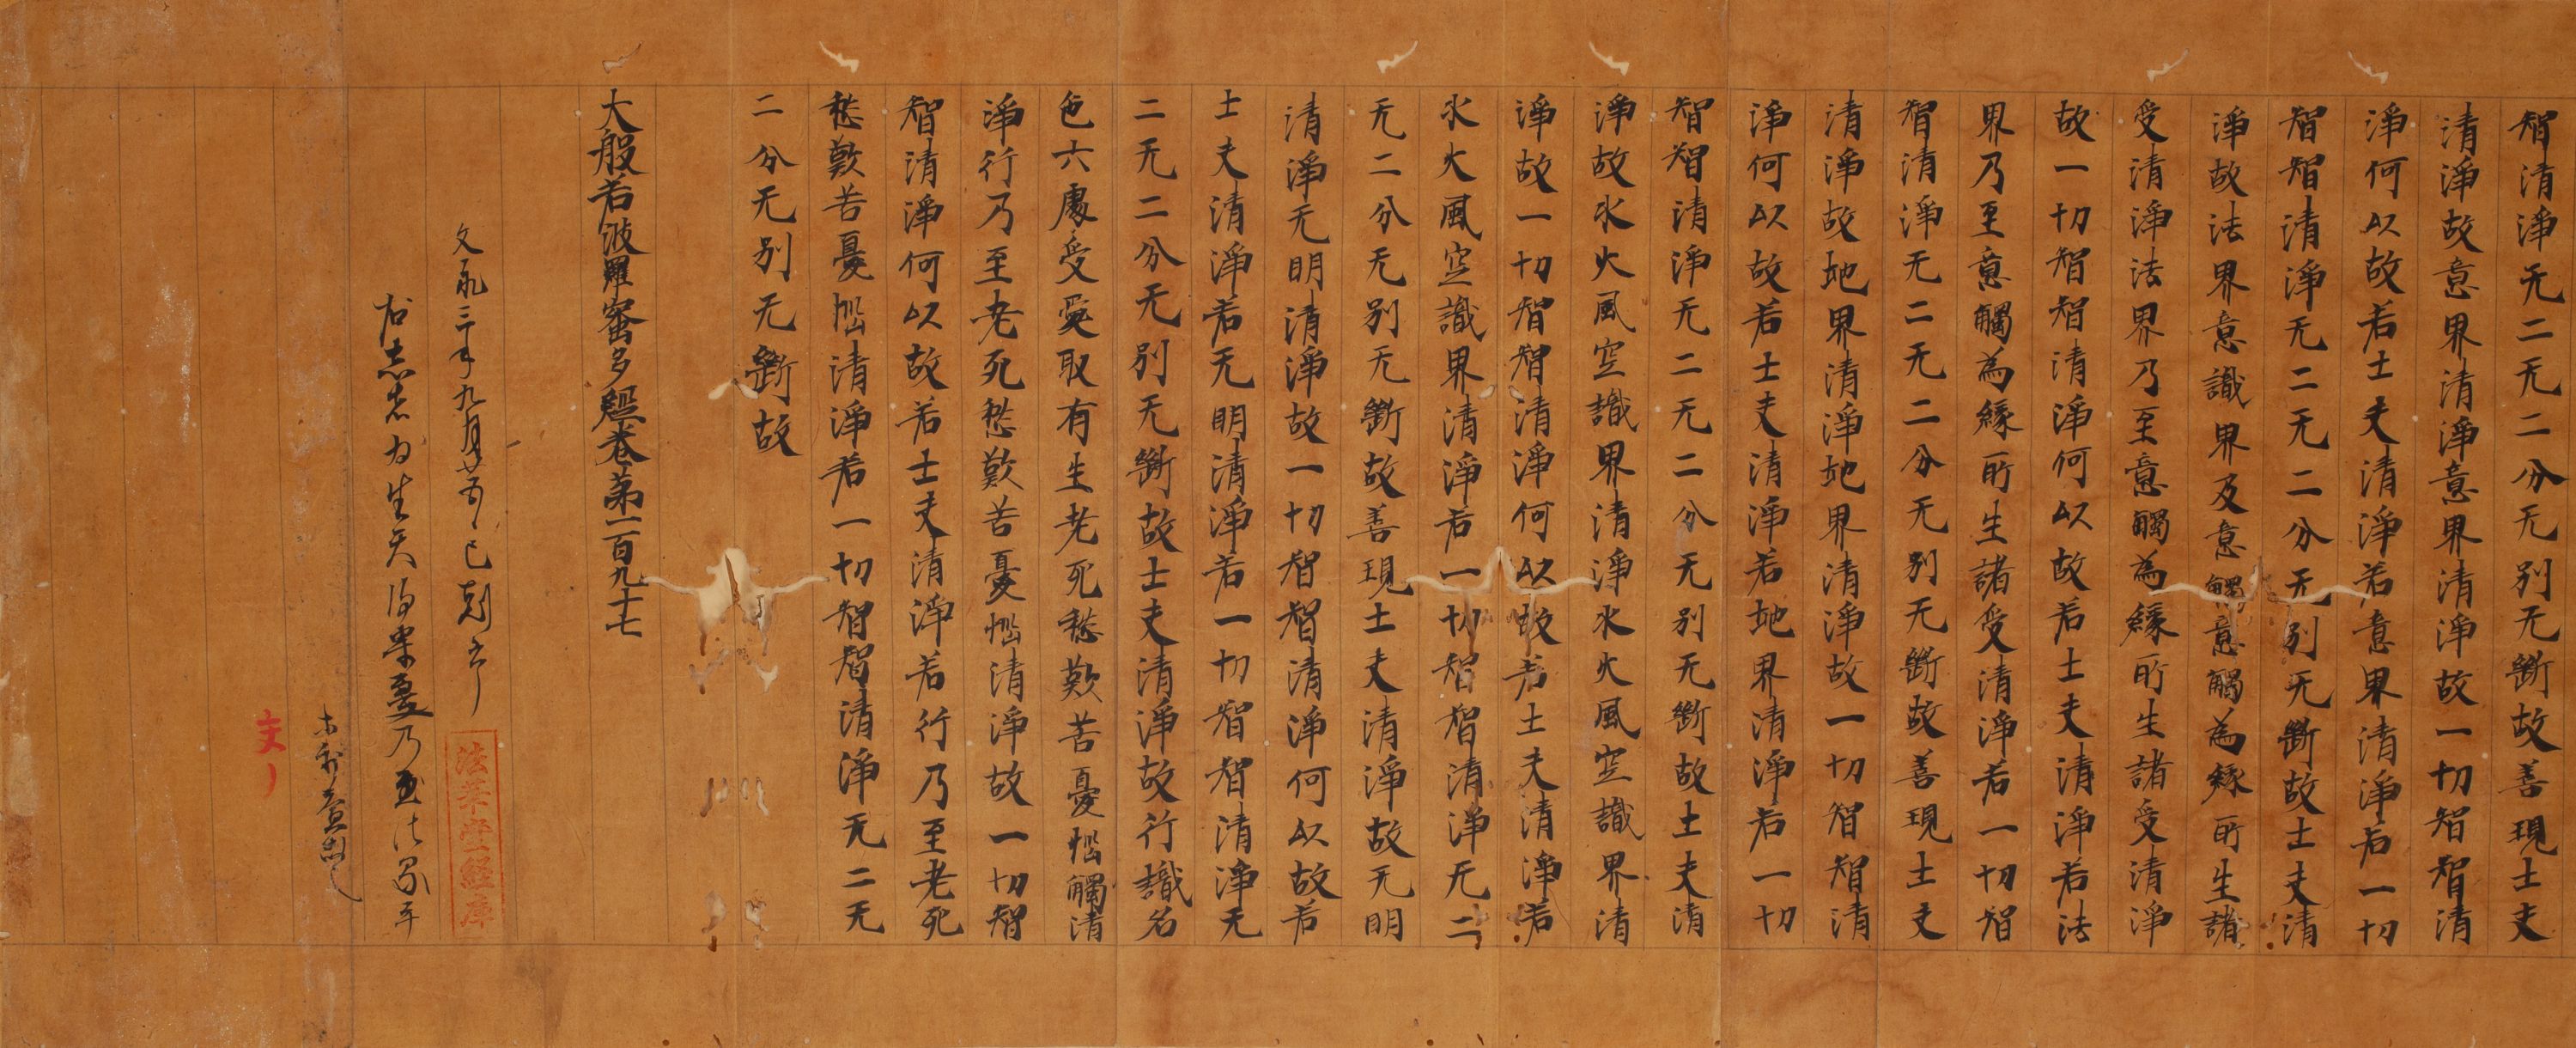 智清淨无二无二分无別无斷故善現士夫
清淨故意界清淨意界清淨故一切智智清
淨何以故若士夫清淨若意界清淨若一切
智智清淨无二无二分无別无斷故士夫清
淨故法界意識界及意觸意觸為緣所生諸
受清淨法界乃至意觸為緣所生諸受清淨
故一切智智清淨何以故若士夫清淨若法
界乃至意觸為緣所生諸受清淨若一切智
智清淨无二无二分无別无斷故善現士夫
清淨故地界清淨地界清淨故一切智智清
淨何以故若士夫清淨若地界清淨若一切
智智清淨无二无二分无別无斷故士夫清
淨故水火風空識界清淨水火風空識界清
淨故一切智智清淨何以故若士夫清淨若
水火風空識界清淨若一切智智清淨无二
无二分无別无斷故善現士夫清淨故无明
清淨无明清淨故一切智智清淨何以故若
士夫清淨若无明清淨若一切智智清淨无
二无二分无別无斷故士夫清淨故行識名
色六處受愛取有生老死愁歎苦憂惱觸清
淨行乃至老死愁歎苦憂惱清淨故一切智
智清淨何以故若士夫清淨若行乃至老死
愁歎苦憂惱清淨若一切智智清淨无二无
二分无別无斷故
大般若波羅蜜多經卷第一百九十七
文永三年九月 巳剋了
法華堂經庫
右志者為 生天得果 乃至法界平